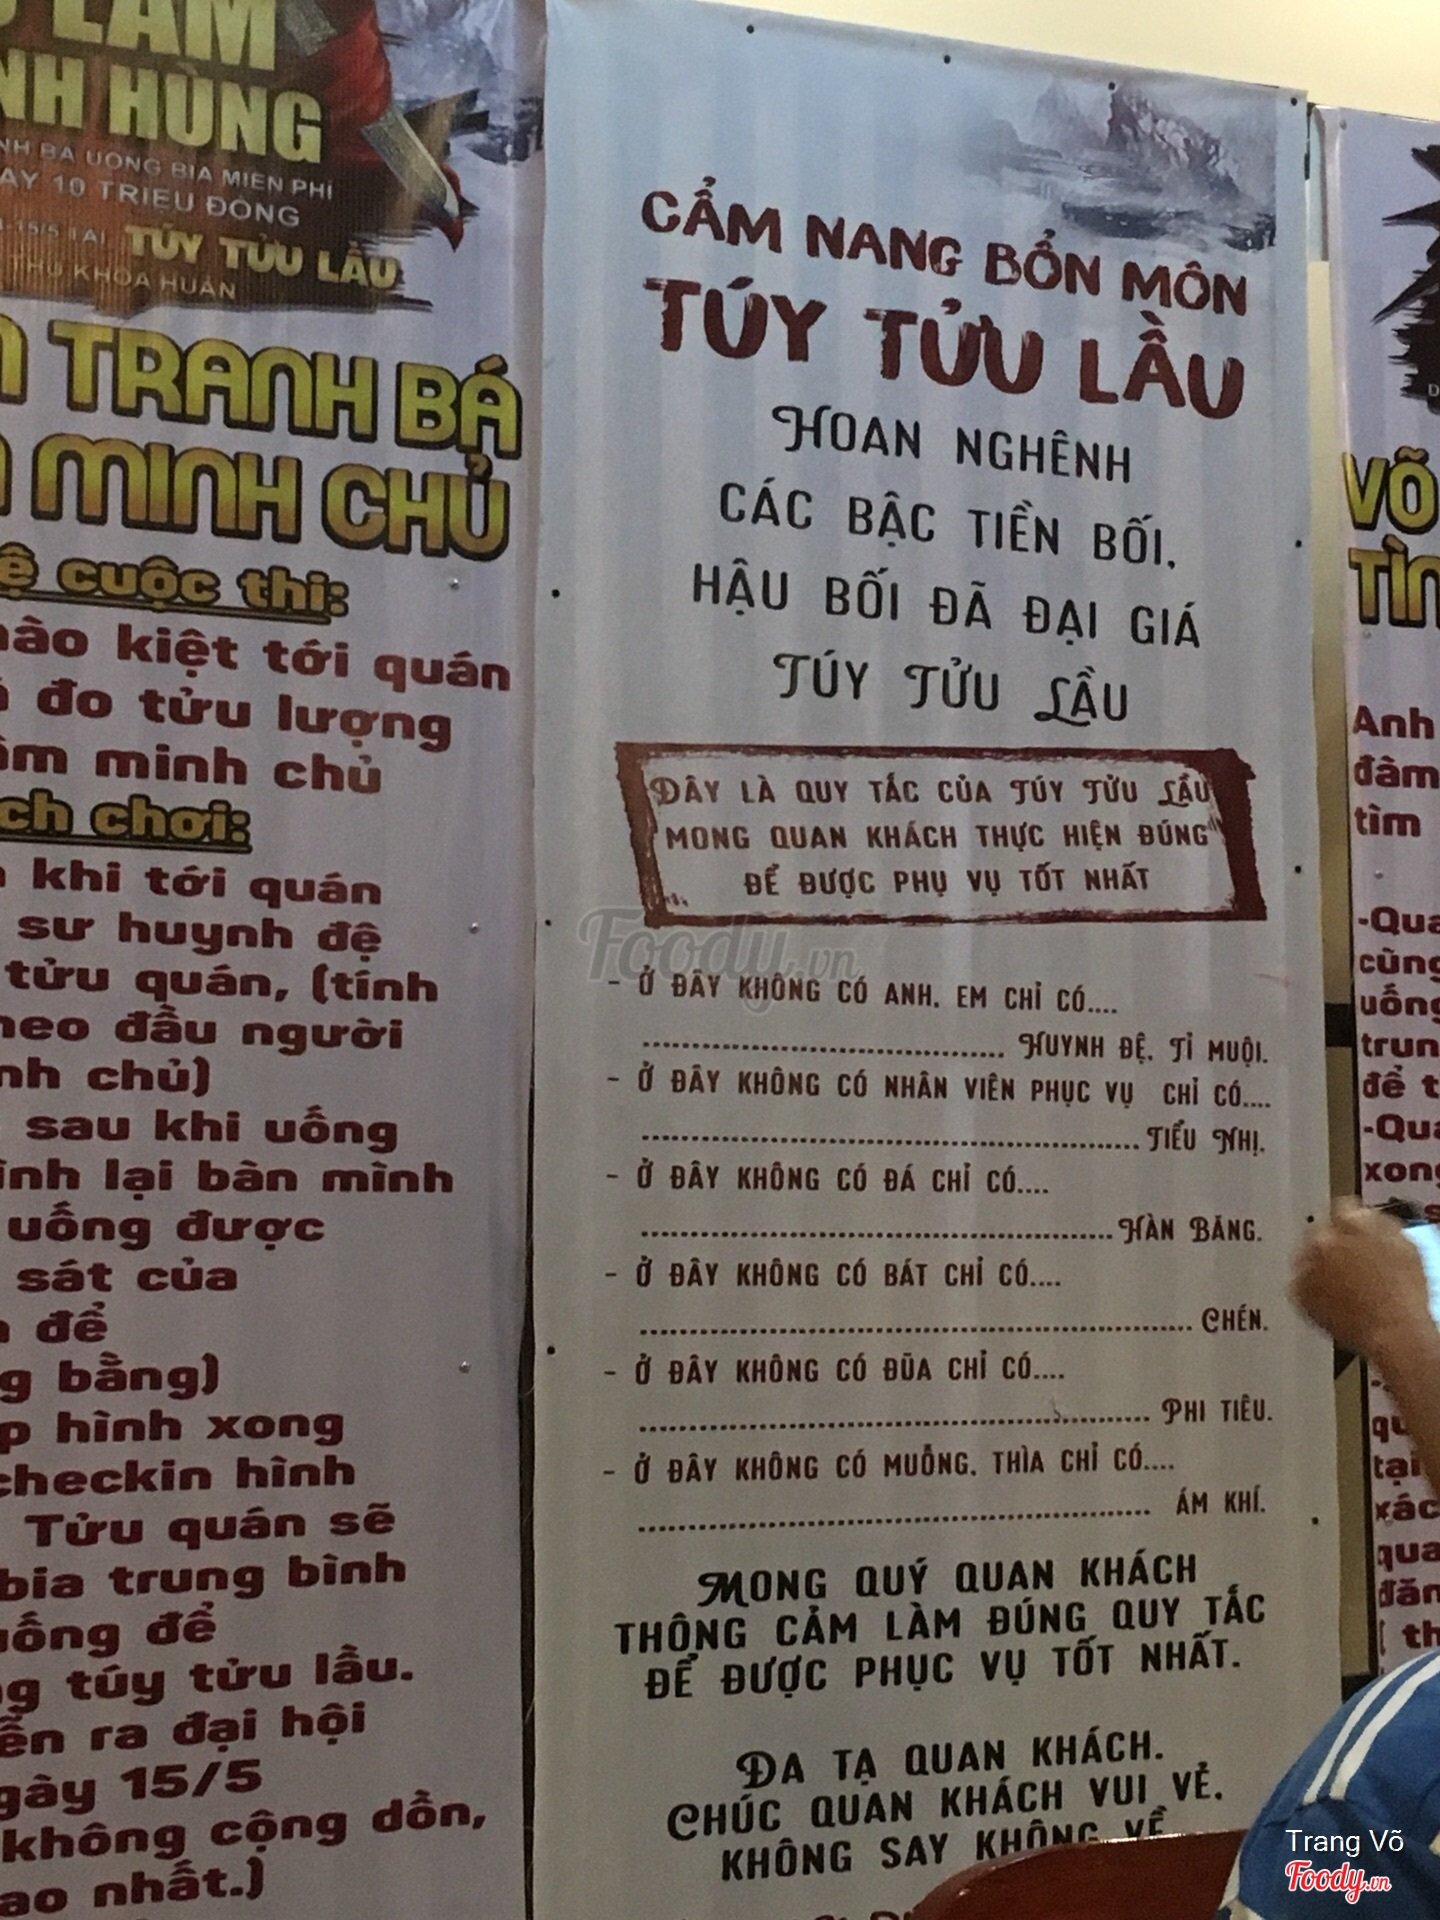 LÂM
NH HÙNG
NH BÁ UỐNG BIA MIỄN PHÍ
AY 10 TRIỆU ĐỒNG
15/5 TẠI TÚY TỬU LẦU
THỦ KHOA HUÂN
TRANH BÁ
MINH CHỦ
ệ cuộc thi:
hào kiệt tới quán
đo tửu lượng
âm minh chủ
ch chơi:
khi tới quán
sư huynh đệ
tửu quán, (tính
heo đầu người
nh chủ)
sau khi uống
ình lại bàn mình
uống được
sát của
để
g bằng)
p hình xong
checkin hình
Tửu quán sẽ
bia trung bình
uống để
g túy tửu lầu.
ễn ra đại hội
gày 15/5
không cộng dồn,
ao nhất.)
CẨM NANG BỔN MÔN
TÚY TỬU LẦU
HOAN NGHÊNH
CÁC BẬC TIỀN BỐI,
HẬU BỐI ĐÃ ĐẠI GIÁ
TÚY TỬU LẦU
ĐÂY LÀ QUY TẮC CỦA TÚY TỬU LẦU
MONG QUAN KHÁCH THỰC HIỆN ĐÚNG
ĐỂ ĐƯỢC PHỤ VỤ TỐT NHẤT
Foody.vn
- Ở ĐÂY KHÔNG CÓ ANH, EM CHỈ CÓ....
.................................... HUYNH ĐỆ, TỈ MUỘI.
- Ở ĐÂY KHÔNG CÓ NHÂN VIÊN PHỤC VỤ CHỈ CÓ....
.................................................. TIỂU NHỊ.
- Ở ĐÂY KHÔNG CÓ ĐÁ CHỈ CÓ....
............................................... HÀN BĂNG.
- Ở ĐÂY KHÔNG CÓ BÁT CHỈ CÓ....
....................................................... CHÉN.
- Ở ĐÂY KHÔNG CÓ ĐŨA CHỈ CÓ....
................................................... PHI TIÊU.
- Ở ĐÂY KHÔNG CÓ MUỖNG, THÌA CHỈ CÓ....
................................................... ÁM KHÍ.
MONG QUÝ QUAN KHÁCH
THÔNG CẢM LÀM ĐÚNG QUY TẮC
ĐỂ ĐƯỢC PHỤC VỤ TỐT NHẤT.
ĐA TẠ QUAN KHÁCH.
CHÚC QUAN KHÁCH VUI VẺ.
KHÔNG SAY KHÔNG VỀ
VÕ
TÌN
Anh
đàm
tìm
-Qua
cũng
uống
trun
để t
-Qua
xong
qu
tại
xác
qua
đăn
( th
Trang Võ
Foody.vn